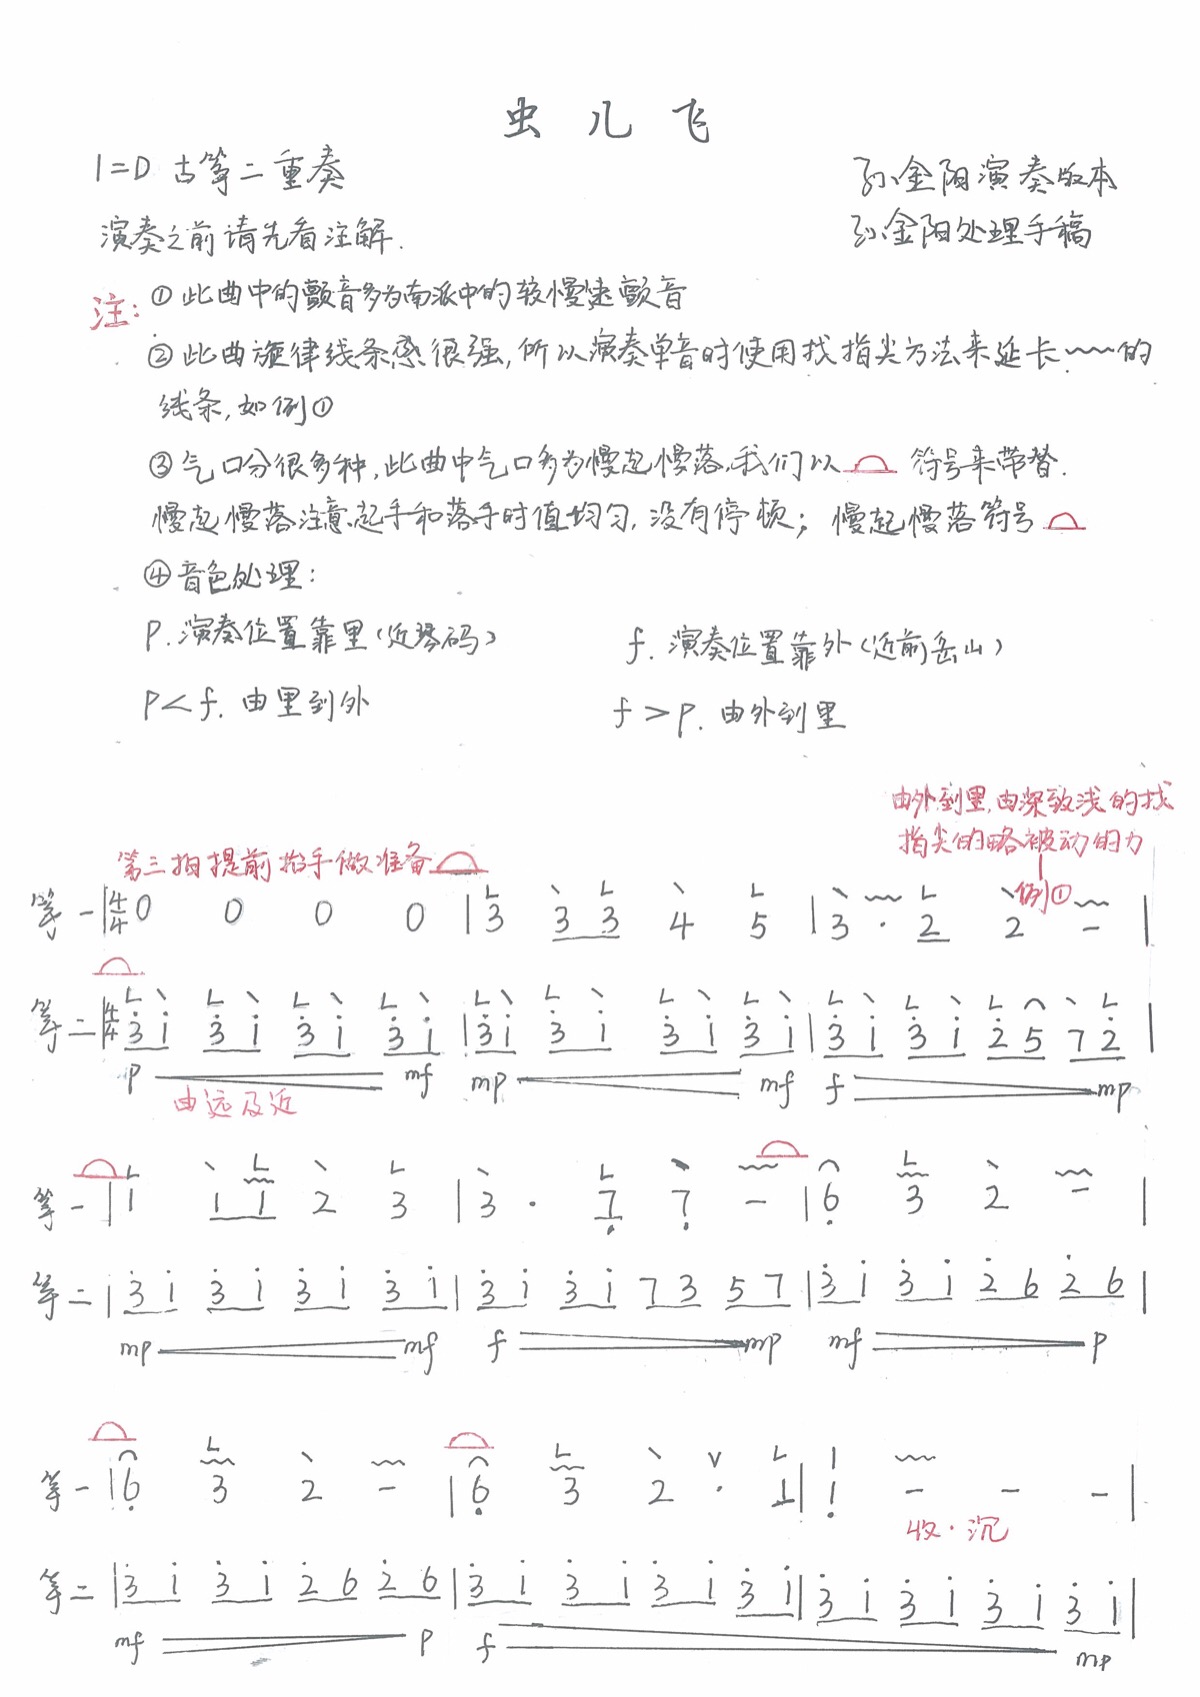 虫儿飞
1=D 古筝二重奏
孙金阳演奏版本
演奏之前请先看注解.
孙金阳处理手稿
注: ①此曲中的颤音多为南派中的较慢速颤音
②此曲旋律线条感很强,所以演奏单音时使用找指尖方法来延长﹏的
线条,如例①
③气口分很多种,此曲中气口多为慢起慢落,我们以 符号来带替.
慢起慢落注意起手和落手时值均匀,没有停顿; 慢起慢落符号
④音色处理:
p. 演奏位置靠里(近琴码)
f. 演奏位置靠外(近前岳山)
p < f. 由里到外
f > p. 由外到里
由外到里,由深致浅的找
指尖的略被动的力
第三拍提前抬手做准备
例①
筝一 |4/4 0 0 0 0 | 3 3 3 4 5 | 3 · 2 2 - |
筝二 |4/4 3̇ 1̇ 3̇ 1̇ 3̇ 1̇ 3̇ 1̇ | 3̇ 1̇ 3̇ 1̇ 3̇ 1̇ 3̇ 1̇ | 3̇ 1̇ 3̇ 1̇ 2̇ 5 7 2̇ |
p < mf mp < mf f > mp
由远及近
筝一 | 1 1 1 2 3 | 3 · 7̣ 7̣ - | 6̣ 3 2 - |
筝二 | 3̇ 1̇ 3̇ 1̇ 3̇ 1̇ 3̇ 1̇ | 3̇ 1̇ 3̇ 1̇ 7 3 5 7 | 3̇ 1̇ 3̇ 1̇ 2̇ 6 2̇ 6 |
mp < mf f > mp mf > p
筝一 | 6̣ 3 2 - | 6̣ 3 2 · 1 | 1 - - - |
收·沉
筝二 | 3̇ 1̇ 3̇ 1̇ 2̇ 6 2̇ 6 | 3̇ 1̇ 3̇ 1̇ 3̇ 1̇ 3̇ 1̇ | 3̇ 1̇ 3̇ 1̇ 3̇ 1̇ 3̇ 1̇ |
mf > p f > mp